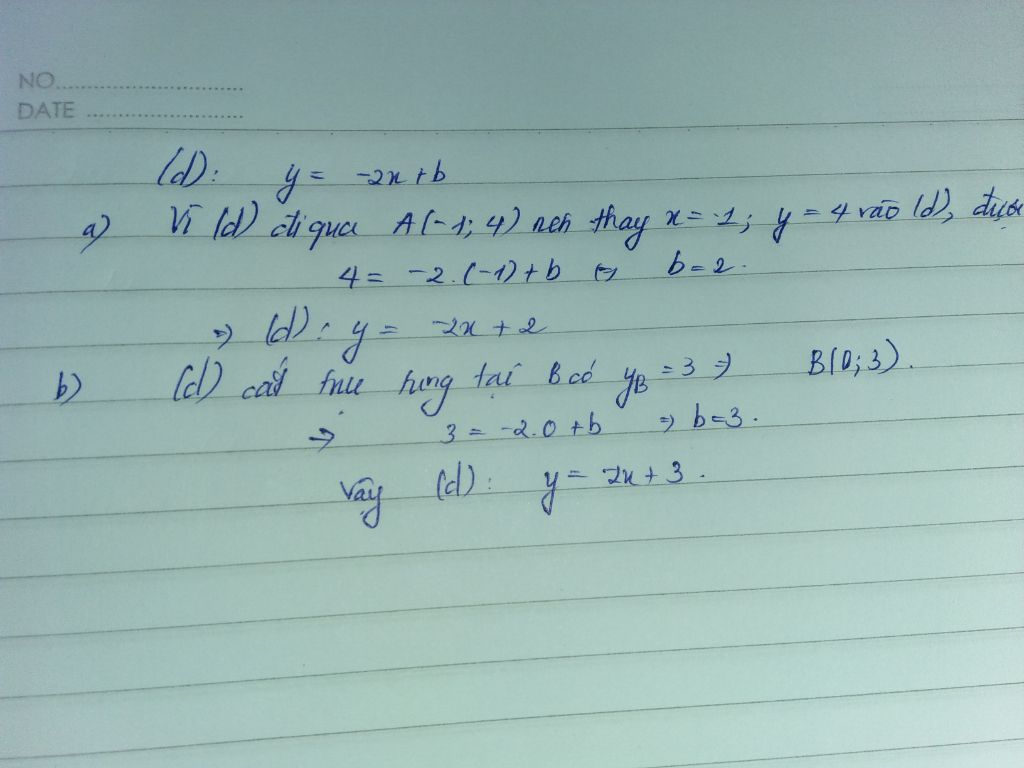 NO.
DATE
(d): y = -2x + b
a) Vì (d) đi qua A(-1; 4) nên thay x = -1; y = 4 vào (d), được
4 = -2.(-1) + b ⇔ b = 2.
⇒ (d): y = -2x + 2
b) (d) cắt trục tung tại B có y_B = 3 ⇒ B(0; 3).
⇒ 3 = -2.0 + b ⇒ b = 3.
Vậy (d): y = 2x + 3.